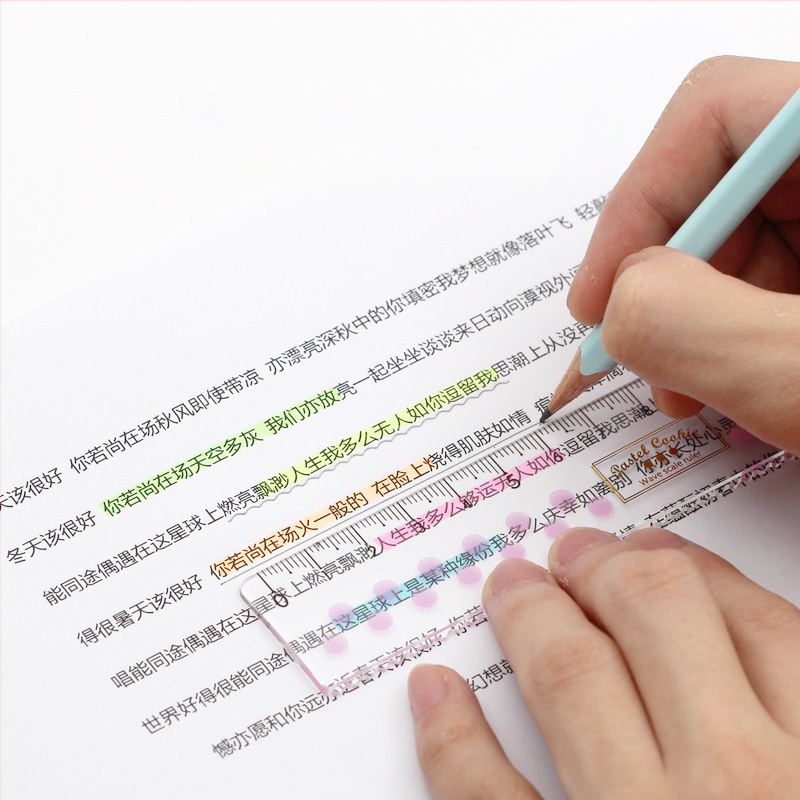 天该很好 你若尚在场秋风即使带凉 亦漂亮深秋中的你填密我梦想就像落叶飞 轻敲
冬天该很好 你若尚在场天空多灰 我们亦放亮一起坐坐谈谈来日动向漠视外间
能同途偶遇在这星球上燃亮飘渺人生我多么无人如你逗留我思潮上从没再
得很暑天该很好 你若尚在场火一般的 在脸上烧得肌肤如情
唱能同途偶遇在这星球上燃亮飘渺人生我多么够运无人如你逗留我思潮
世界好得很能同途偶遇在这星球上是某种缘份我多么庆幸如离别
憾亦愿和你远
春天该很好 你若
幻想就
0 2 4 5 6 8
Pastel Cookie
Wave scale ruler